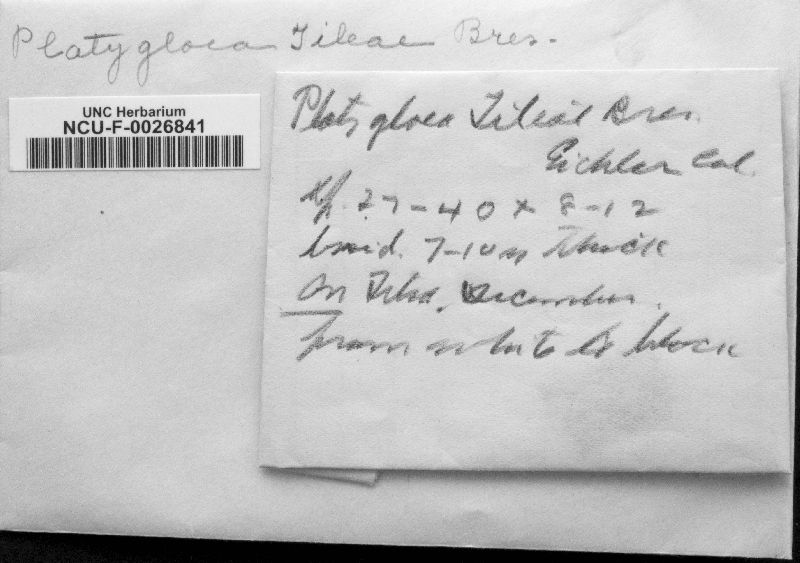 Platygloea Tileae Bres.
UNC Herbarium
NCU-F-0026841
Platygloea Tileae Bres.
Eichler Col.
Sp. 27-40 x 8-12
basid. 7-10 thick
On Tilia, December.
from white to black